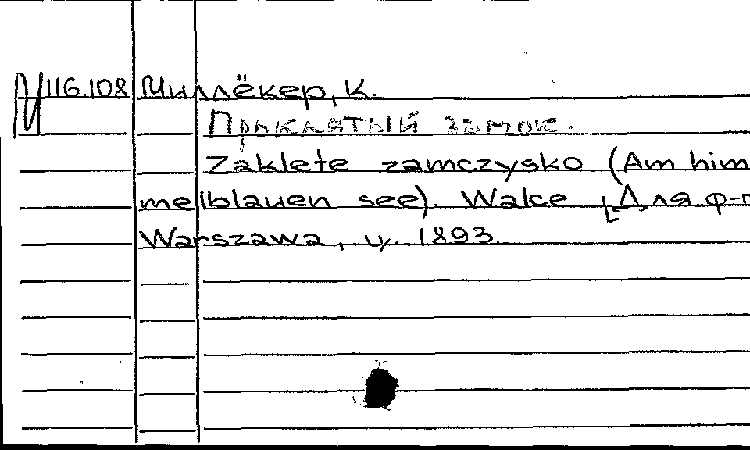 И 116.108 Миллёкер, К.
Проклятый замок.
Zaklete zamczysko (Am him
melblauen see). Walce [Для ф-п
Warszawa, ц. 1893.